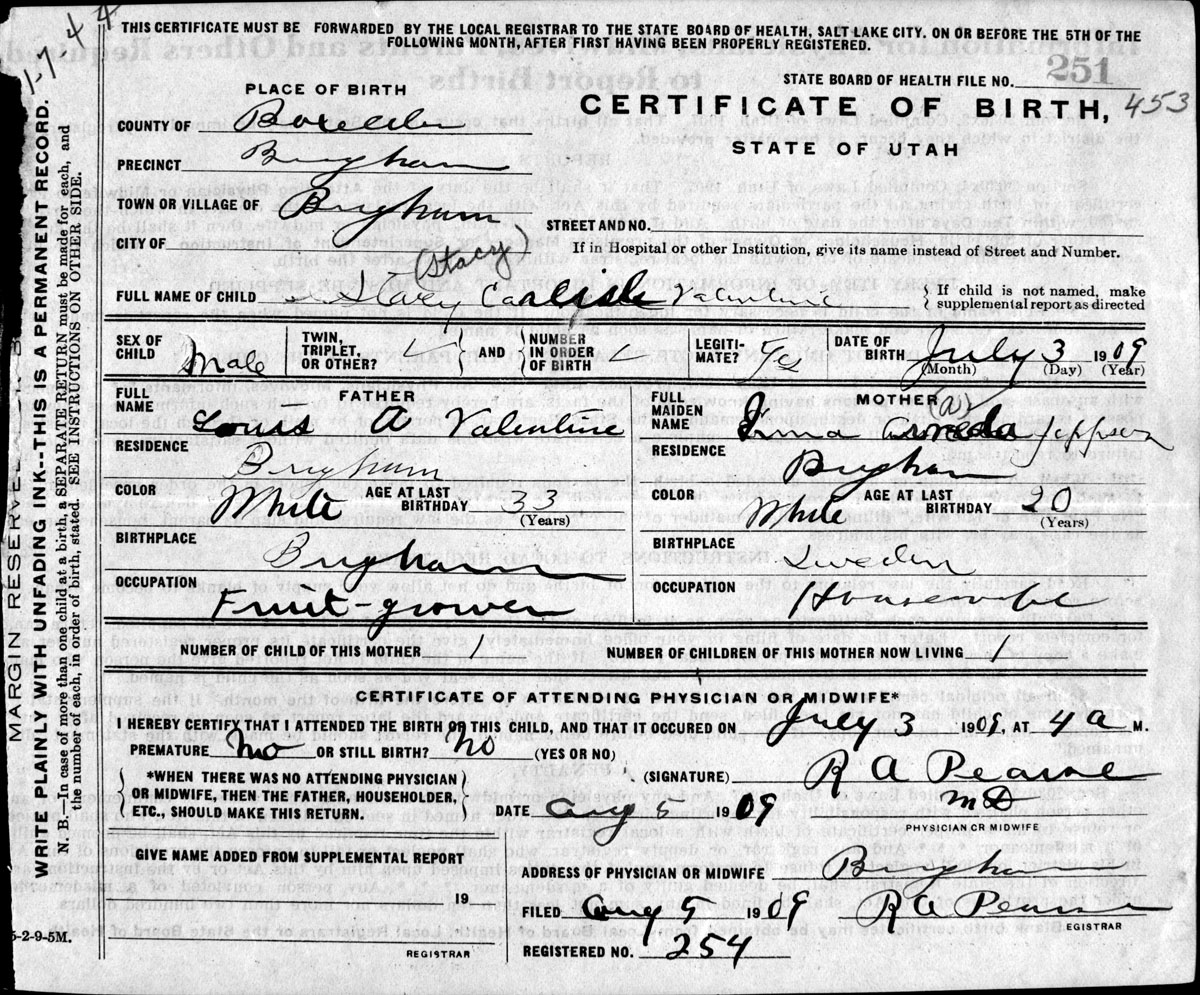 THIS CERTIFICATE MUST BE FORWARDED BY THE LOCAL REGISTRAR TO THE STATE BOARD OF HEALTH, SALT LAKE CITY. ON OR BEFORE THE 5TH OF THE
FOLLOWING MONTH, AFTER FIRST HAVING BEEN PROPERLY REGISTERED.
STATE BOARD OF HEALTH FILE NO. 251
453
PLACE OF BIRTH
CERTIFICATE OF BIRTH,
STATE OF UTAH
COUNTY OF Boxelder
PRECINCT Brigham
TOWN OR VILLAGE OF Brigham
STREET AND NO.
CITY OF
If in Hospital or other Institution, give its name instead of Street and Number.
(Stacy)
FULL NAME OF CHILD Stacey Carlisle Valentine
{ If child is not named, make
supplemental report as directed
SEX OF CHILD Male
TWIN, TRIPLET, OR OTHER?
AND
NUMBER IN ORDER OF BIRTH
LEGITIMATE?
DATE OF BIRTH July 3 1909
(Month) (Day) (Year)
FATHER
FULL NAME Louis A Valentine
RESIDENCE Brigham
COLOR White AGE AT LAST BIRTHDAY 33
(Years)
BIRTHPLACE Brigham
OCCUPATION Fruit-grower
MOTHER
(a)
FULL MAIDEN NAME Irma Jeppson
RESIDENCE Brigham
COLOR White AGE AT LAST BIRTHDAY 20
(Years)
BIRTHPLACE Sweden
OCCUPATION Housewife
NUMBER OF CHILD OF THIS MOTHER 1
NUMBER OF CHILDREN OF THIS MOTHER NOW LIVING 1
CERTIFICATE OF ATTENDING PHYSICIAN OR MIDWIFE*
I HEREBY CERTIFY THAT I ATTENDED THE BIRTH OR THIS CHILD, AND THAT IT OCCURED ON July 3 1909, AT 4 a M.
PREMATURE No OR STILL BIRTH? No (YES OR NO)
*WHEN THERE WAS NO ATTENDING PHYSICIAN
OR MIDWIFE, THEN THE FATHER, HOUSEHOLDER,
ETC., SHOULD MAKE THIS RETURN.
(SIGNATURE) R A Pearse
MD
PHYSICIAN OR MIDWIFE
DATE Aug 5 1909
GIVE NAME ADDED FROM SUPPLEMENTAL REPORT
19
REGISTRAR
ADDRESS OF PHYSICIAN OR MIDWIFE Brigham
FILED Aug 5 1909 R A Pearse
EGISTRAR
REGISTERED NO. 254
5-2-9-5M.
MARGIN RESERVE
WRITE PLAINLY WITH UNFADING INK--THIS IS A PERMANENT RECORD.
N. B.--In case of more than one child at a birth, a SEPARATE RETURN must be made for each, and
the number of each, in order of birth, stated. SEE INSTRUCTIONS ON OTHER SIDE.